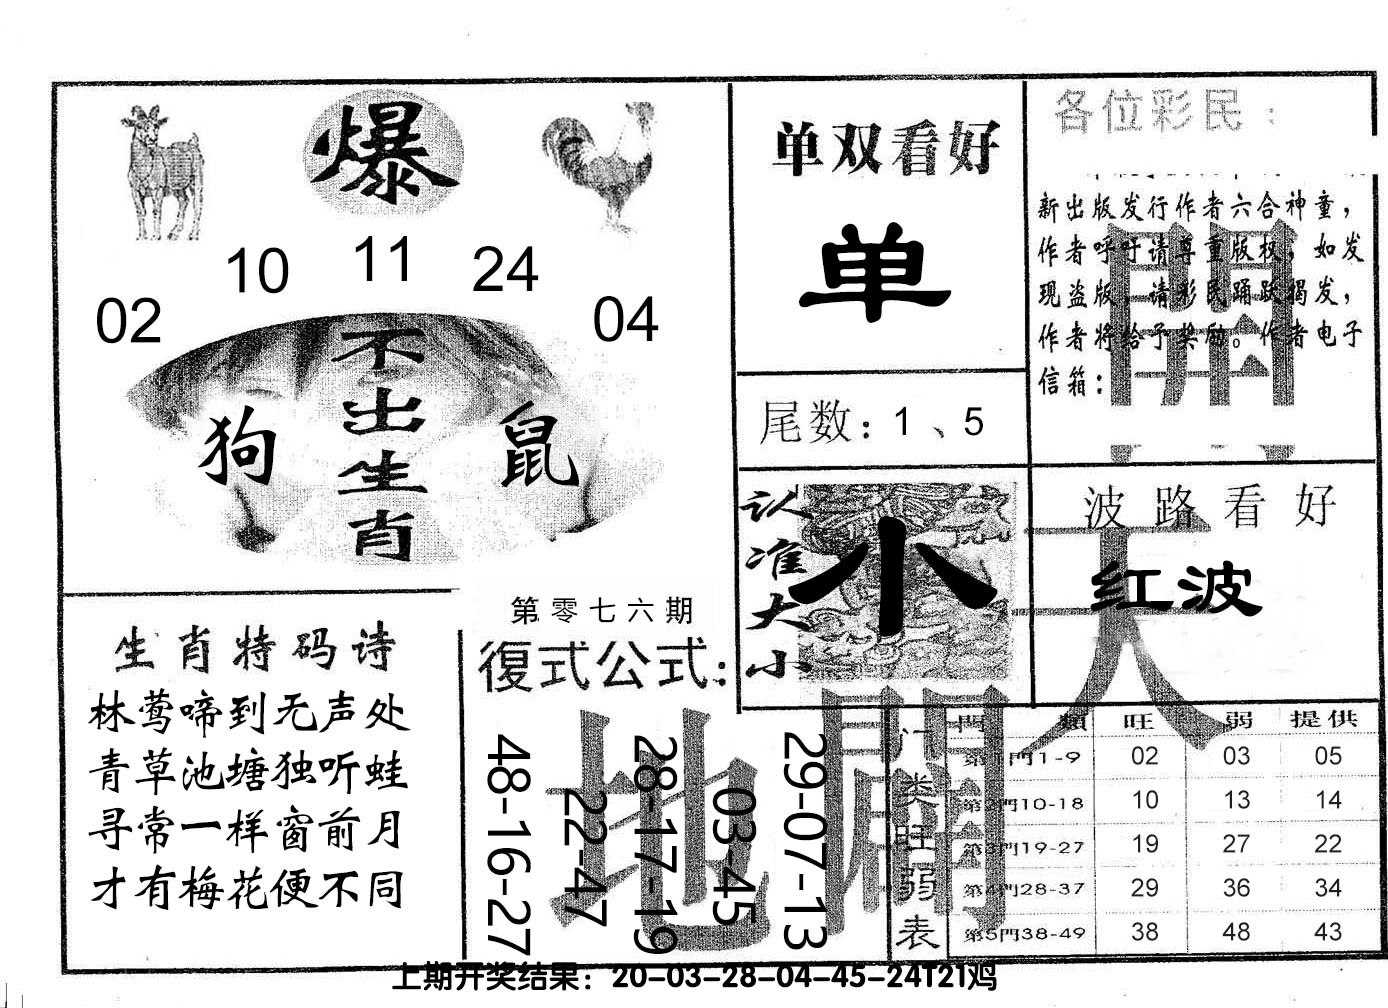 爆
10 11 24
02 04
不出生肖
狗 鼠
单双看好
单
尾数：1、5
认准大小
小
各位彩民：
新出版发行作者六合神童，
作者呼吁请尊重版权，如发
现盗版，请彩民踊跃揭发，
作者将给予奖励。作者电子
信箱：
開
波路看好
红波
天
生肖特码诗
林莺啼到无声处
青草池塘独听蛙
寻常一样窗前月
才有梅花便不同
第零七六期
復式公式：
48-16-27
22-47
28-17-19
03-45
29-07-13
地
门类旺弱表
門類 旺 弱 提供
第1門1-9 02 03 05
第2門10-18 10 13 14
第3門19-27 19 27 22
第4門28-37 29 36 34
第5門38-49 38 48 43
上期开奖结果：20-03-28-04-45-24T21鸡